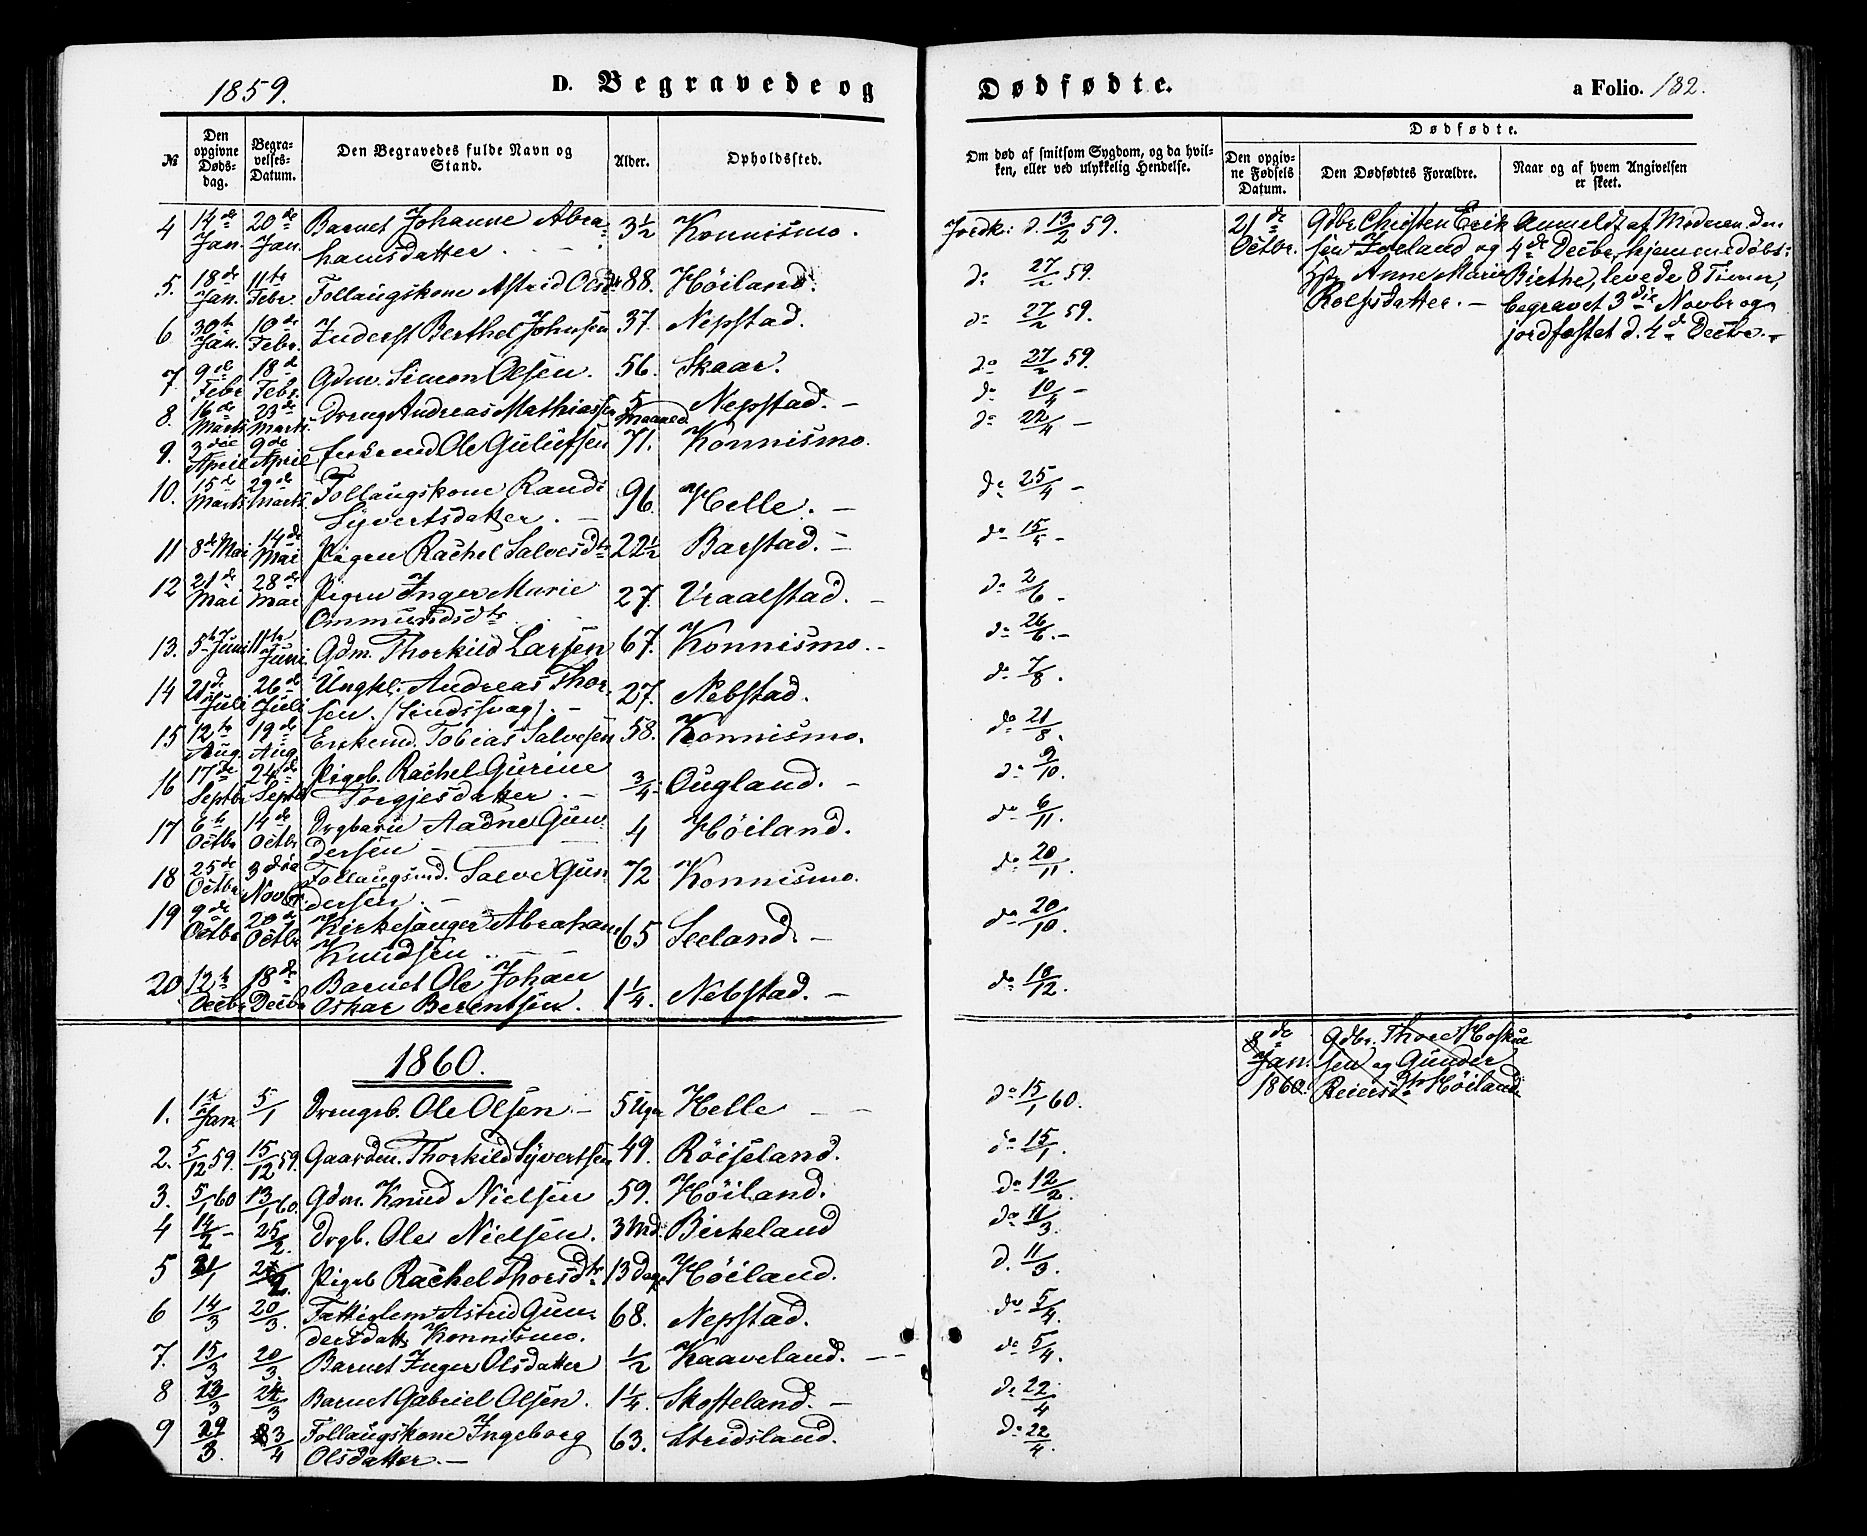 1859. D. Begravede og Dødfødte. a Folio. 182.
№ Den opgivne Dødsdag. Begravelses-Datum. Den Begravedes fulde Navn og Stand. Alder. Opholdssted. Om død af smitsom Sygdom, og da hvilken, eller ved ulykkelig Hendelse. Dødfødte. Den opgivne Fødsels Datum. Den Dødfødtes Forældre. Naar og af hvem Angivelsen er skeet.
4 14de Jan. 20de Jan. Barnet Johanne Abrahamsdatter. 3½ Konnismo. Jordk: d. 13/2 59.
5. 18de Jan. 11te Febr. Follaugskone Astrid Olsdr 88. Høiland. do 27/2 59.
6 30te Jan. 10de Febr. Inderst Berthel Johnsen 37. Nepstad. do 27/2 59.
7 9de Febr 18de Febr. Gdm. Simon Olsen. 56. Skaar. do 27/2 59.
8. 16de Marts 23de Marts. Dreng Andreas Mathiassen 5 Maaned Nepstad. – do 10/4 –
9. 3die April 9de April Enkemd Ole Gulufsen 71. Konnismo. do 22/4 –
10. 15de Marts 29de Marts. Follaugskone Rande Syvertsdatter. – 96. Helle. – do 25/4 –
11 8de Mai 14de Mai Pigen Rachel Salvesdtr 22½ Barstad. – do 15/5 –
12 21de Mai 28de Mai Pigen Inger Marie Ommundsdtr 27. Vraalstad. – do 2/6 –
13. 5te Juni 11te Juni Gdm. Thorkild Larsen 67. Konnismo. – do 26/6. –
14 21de Juli 26de Juli Ungkl. Andreas Thorsen. (Sindssvag). – 27. Nebstad. do 7/8.
15 12te Aug. 19de Aug Enkemd. Tobias Salvesen 58. Konnismo. do 21/8.
16 17de Septbr 24de Septbr Pigeb. Rachel Gurine Torgjesdatter. – ¾. Ougland. – do 9/10.
17 6te Octbr 14de Octbr Drgbarn Aadne Gundersen – 4 Høiland. do 6/11.
18 25de Octbr 3die Novbr Follaugsmd. Salve Gundersen. – 72 Konnismo. do 20/11.
19 9de Octbr 20de Octbr Kirkesanger Abraham Knudsen. 65 Seeland. – do 20/10.
20 12te Decbr 18de Decbr Barnet Ole Johan Oskar Berentsen. 1¼. Nebstad. – do 18/12.
21de Octbr. Gdbr Christen Eriksen Iveland og Hstr Anne Marie Rolfsdatter. –
Anmeldt af Moderen den
4de Decbr, hjemmedøbt:
Birthe, levede 8 Timer,
begravet 3die Novbr og
jordfæstet d. 4de Decbr. –
1860.
1. 1ste Jan. 5/1 Drengb. Ole Olsen. – 5 Uger Helle – – do 15/1 60.
2. 5/12 59. 15/12 59. Gaardm. Thorkild Syvertsen 49. Røiseland. do 15/1.
3. 5/1 60 13/1 60. Gdm. Knud Nielsen 59. Høiland. do 12/2.
4 14/2 – 25/2. Drgb. Ole Nielsen. 3 Md. Birkeland do 11/3.
5 21/1 Pigeb Rachel Thorsdtr 13 Dage Høiland. d. 11/3.
6 14/3 20/3. Fattiglem Astrid Gundersdatt. Konnismo. 68. Nepstad. do 5/4.
7. 15/3 20/3. Barnet Inger Olsdatter ½ Kaaveland. – – do 5/4.
8 13/3 24/3 Barnet Gabriel Olsen. 1¼. Skofteland. – do 22/4
9 29/3. 3/4 Follaugskone Ingeborg Olsdatter. – 63. Stridsland. do 22/4.
8de Jan. 1860. Gdbr. Thore Hoskuldsen og Gunder Reiersdtr Høiland.